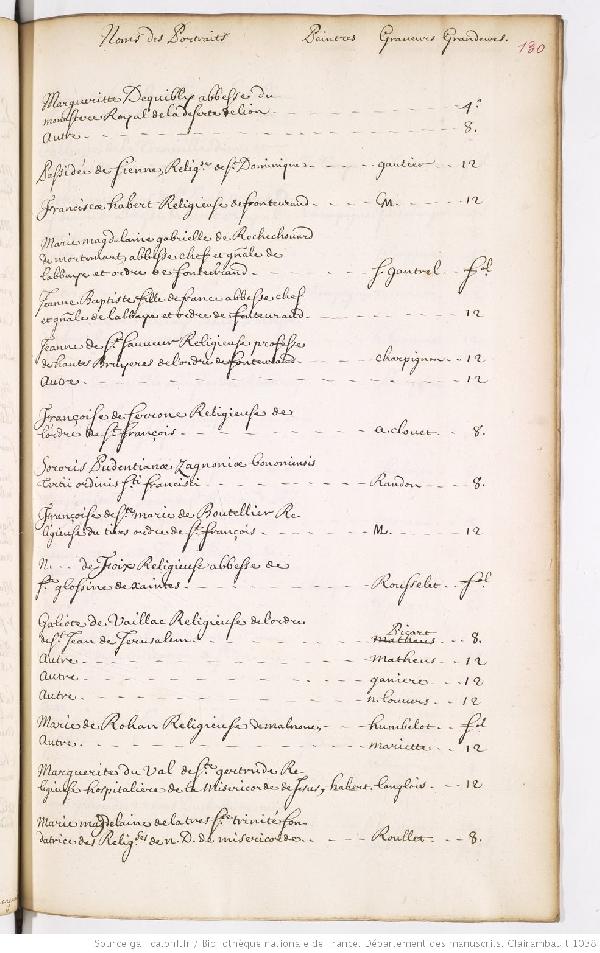 Noms des Portraits Peintres Graveurs Grandeurs. 130
Margueritte Dequibly abbesse du
monastere Royal de la deserte de lion 4.°
Autre 8.
de fienne, Relig.se de S.t Dominique gautier 12
Francisca habert Religieuse de fonteuraud GM. 12
Marie magdelaine gabrielle de Rochechouard
de mortemart, abbesse chef et gñale de
labbaye et ordre de fonteuraud f. gantrel f.ol
Jeanne Baptiste fille de france abbesse chef
et gñale de labbaye et ordre de fonteuraud 12
Jeanne de S.t sauueur Religieuse professe
de hautes Bruyeres de lordre de fonteuraud charpignon 12
Autre 12
Françoise de ferrone Religieuse de
lordre de S.t françois a. clouet 8.
Sororis Prudentianæ Zagnoniæ bononiensis
tertii ordinis s.ti francisci Randon 8.
Françoise de s.te marie de Boutellier Re-
ligieuse du tiers ordre de S.t françois M. 12
N... de Foix Religieuse abbesse de
s.te glossine de xaintes Rousselet f.ol
Galiote de Vaillac Religieuse de lordre
de S.t Jean de Jerusalem Picart matheus 8.
Autre Matheus 12
Autre ganiere 12
Autre 12
Marie de Rohan Religieuse de malnoue, humbelot f.ol
Autre mariette 12
Marguerite du Val de s.te gertrude Re-
ligieuse hospitaliere de la Misericorde de Jesus, habert. langlois 12
Marie magdelaine de la tres s.te trinité fon-
datrice des Relig.ses de n. D. de misericorde Roullet 8.
Source gallica.bnf.fr / Bibliothèque nationale de France. Département des manuscrits. Clairambault 1038